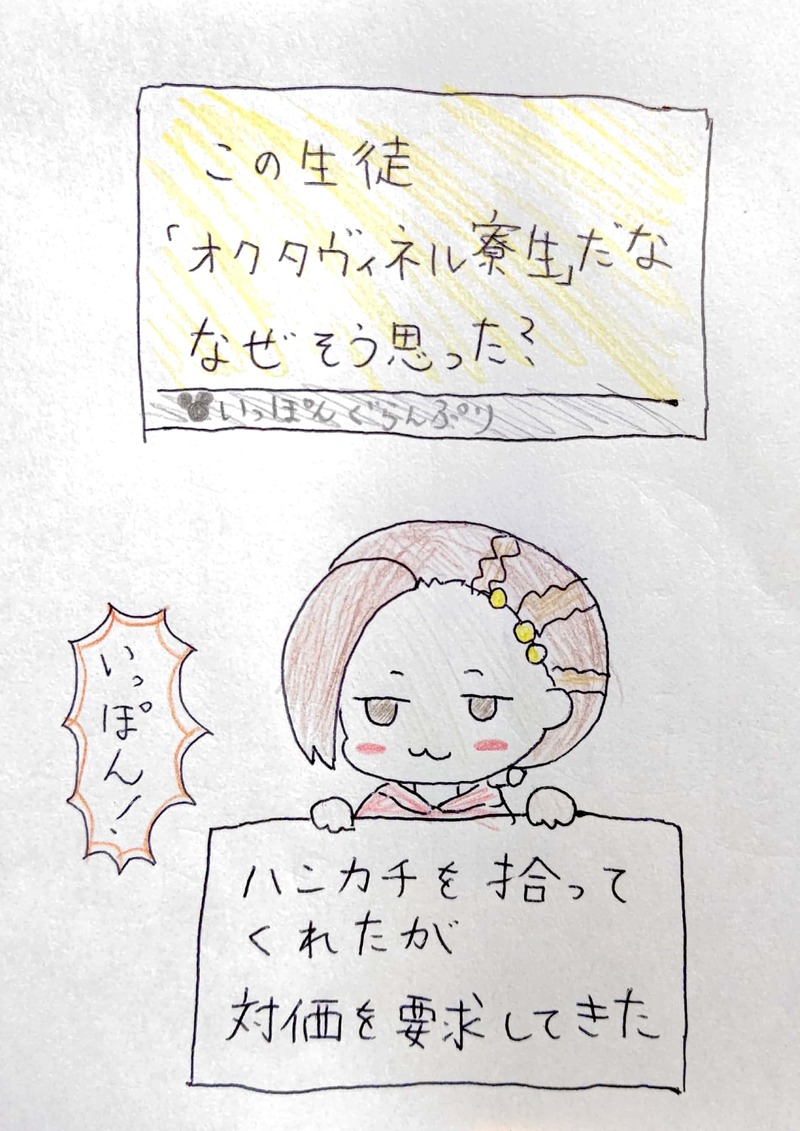 この生徒
「オクタヴィネル寮生」だな
なぜそう思った?
いっぽんぐらんぷり
いっぽん!
ハンカチを拾って
くれたが
対価を要求してきた